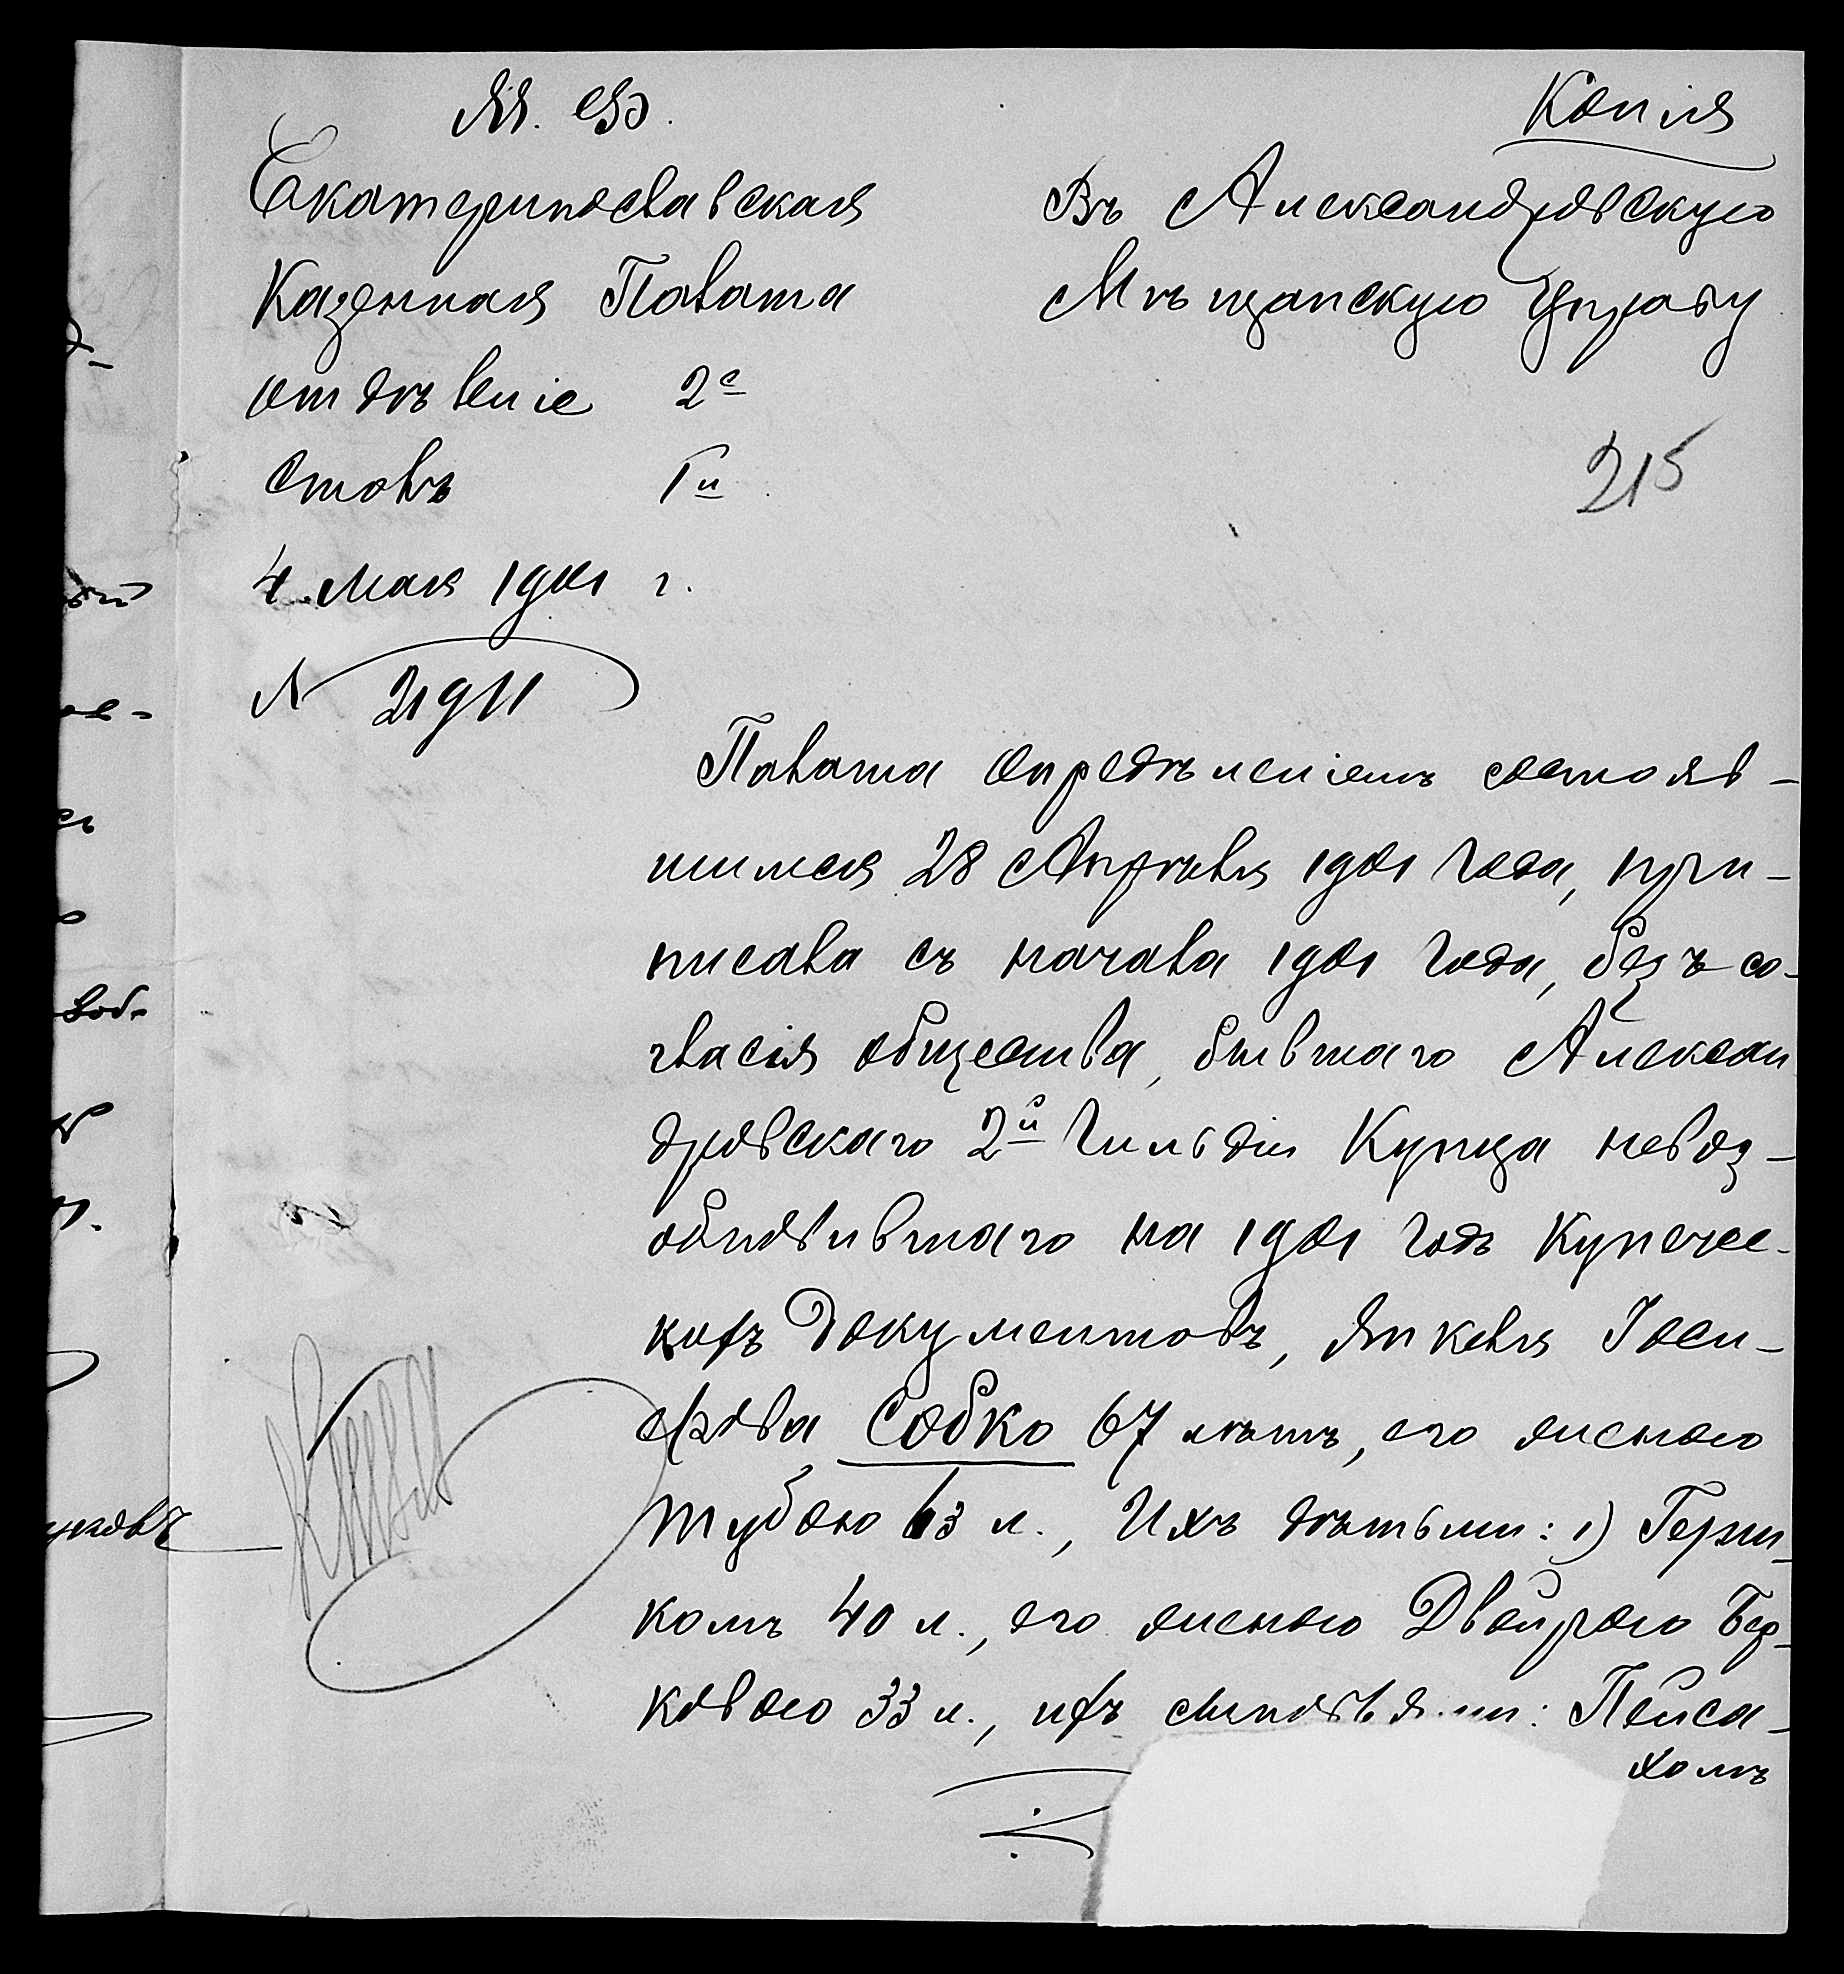 М. Ф.
Копія
Екатеринославская
Казенная Палата
отдѣленіе 2е
Столъ 1й
4 Мая 1901 г.
№ 21911
Въ Александровскую
Мѣщанскую Управу
215
Палата опредѣленіемъ состояв-
шимся 28 Апрѣля 1901 года, при-
писала съ начала 1901 года, безъ со-
гласія общества, бывшаго Александ
дровскаго 2й Гильдіи Купца невоз-
обновившаго на 1901 годъ Купечес-
кихъ Документовъ, Янкеля Іоси-
фова Собко 67 лѣтъ, его женою
Тубою 63 л., Ихъ дѣтьми: 1) Герш-
комъ 40 л., его женою Двейрою Бер-
ковою 33 л., ихъ сыновьями: Пейса-
хомъ